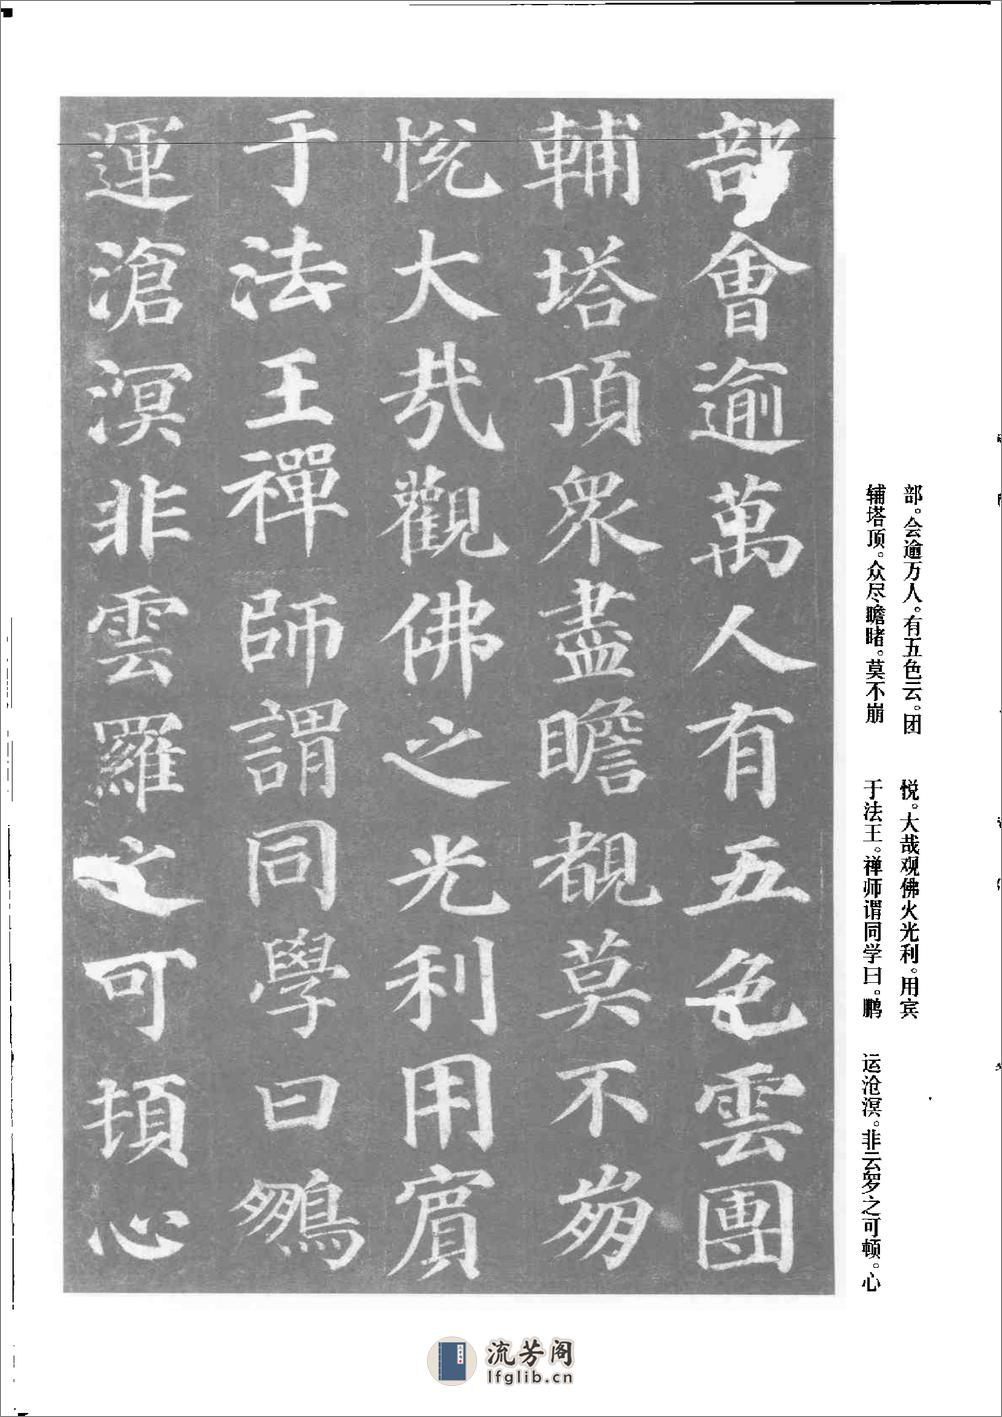 部會逾萬人有五色雲團
輔塔頂眾盡瞻覩莫不崩
悅大哉觀佛之光利用賓
于法王禪師謂同學曰鵬
運滄溟非雲羅之可頓心
部。会逾万人。有五色云。团
辅塔顶。众尽瞻睹。莫不崩
悦。大哉观佛火光利。用宾
于法王。禅师谓同学曰。鹏
运沧溟。非云罗之可顿。心
流芳阁
lfglib.cn